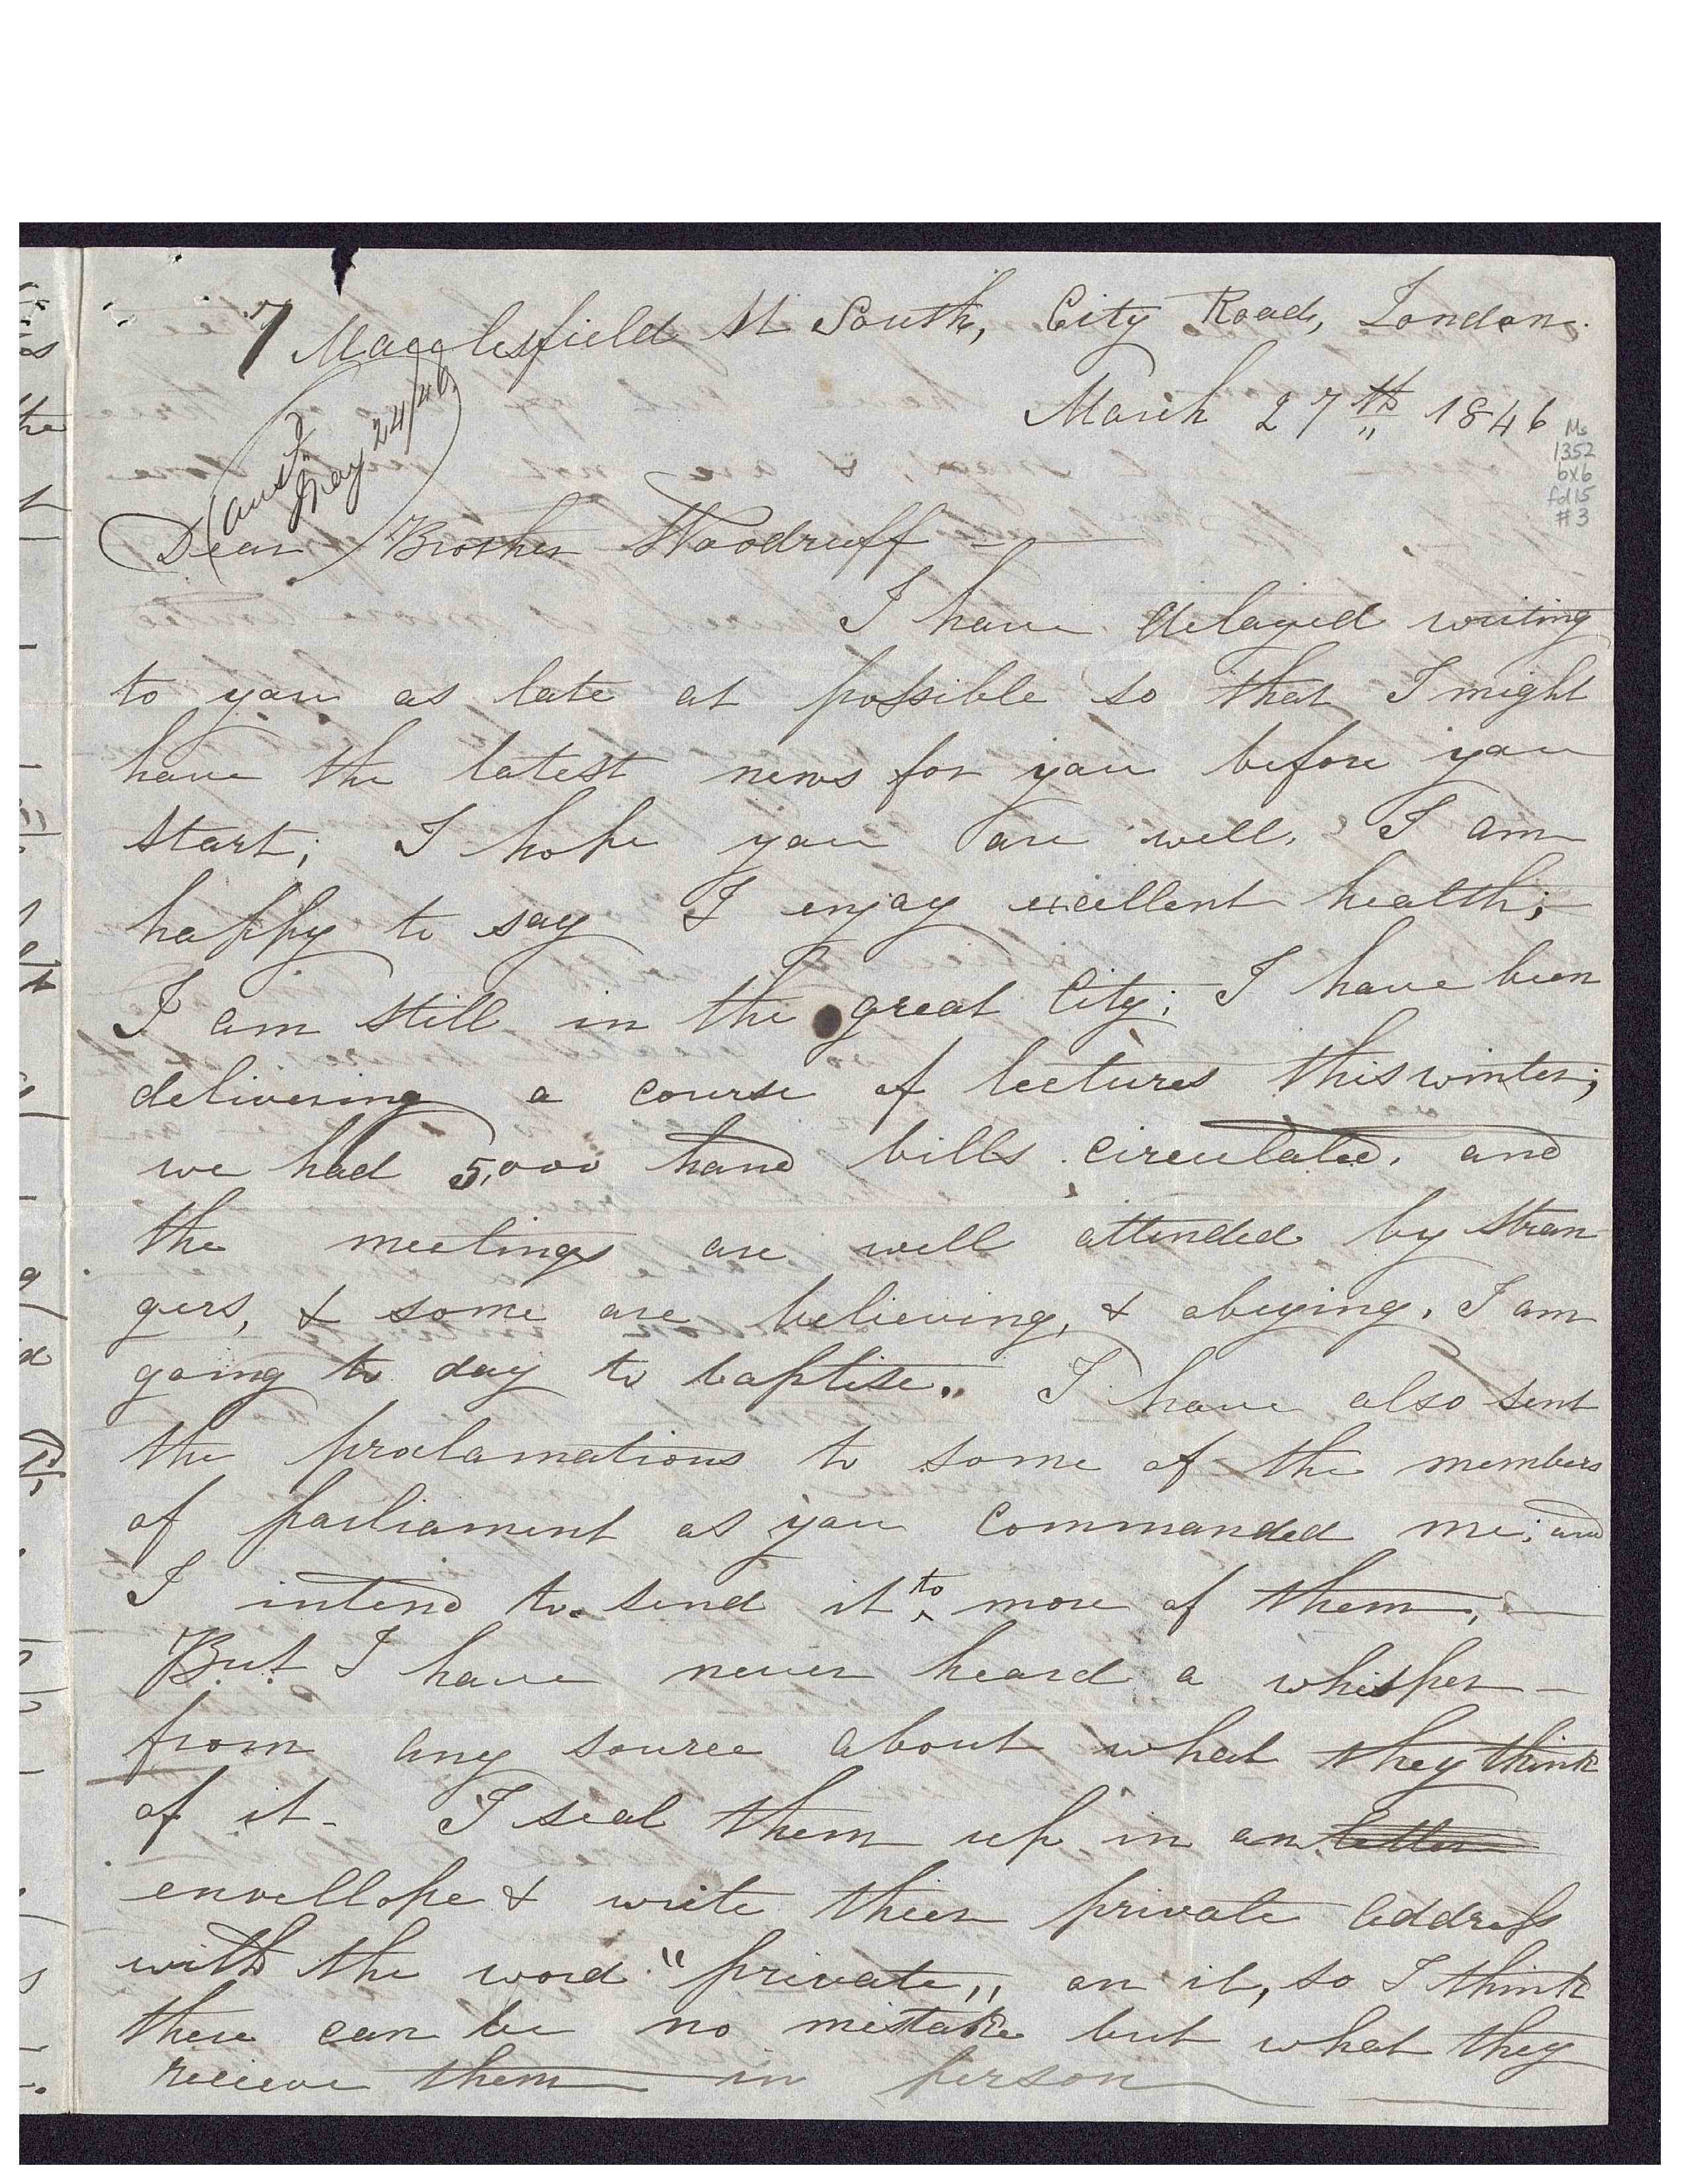 7 Macclesfield St South, City Road, London.
March 27th 1846
Ms
1352
bx6
fd15
#3
May 24/46
Dear Brother Woodruff —
I have delayed writing
to you as late as possible so that I might
have the latest news for you before you
start; I hope you are well. I am
happy to say I enjoy excellent health;
I am still in the great City; I have been
delivering a course of lectures this winter;
we had 5,000 hand bills circulated, and
the meetings are well attended by stran
gers, & some are believing, & obeying. I am
going to day to baptise. I have also sent
the proclamations to some of the members
of parliament as you commanded me; and
I intend to send it to more of them, —
But I have never heard a whisper —
from any source about what they think
of it - I seal them up in an letter
envellope & write thier private address
with the word "private,, on it, so I think
there can be no mistake but what they
recieve them in person